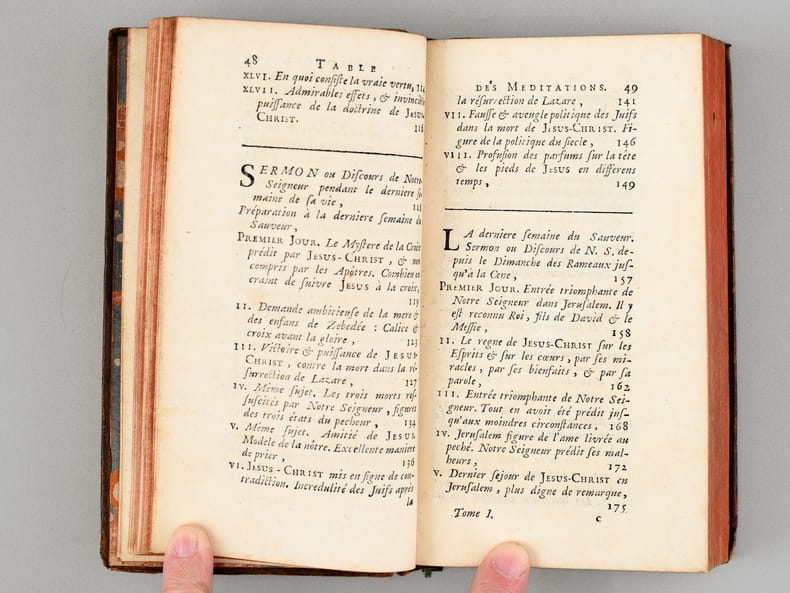 48 TABLE
XLVI. En quoi consiſte la vraie vertu, 114
XLVII. Admirables effets, & invincible
puiſſance de la doctrine de JESUS-
CHRIST.
SERMON ou Diſcours de Notre
Seigneur pendant le derniere ſe-
maine de ſa vie,
Préparation à la derniere ſemaine du
Sauveur,
PREMIER JOUR. Le Myſtere de la Croix
prédit par JESUS-CHRIST, & non
compris par les Apôtres. Combien on
craint de ſuivre JESUS à la croix,
119
II. Demande ambitieuſe de la mere &
des enfans de Zébedée : Calice &
croix avant la gloire, 123
III. Victoire & puiſſance de JESUS-
CHRIST, contre la mort dans la ré-
ſurrection de Lazare, 127
IV. Même ſujet. Les trois morts reſ-
ſuſcités par Notre Seigneur, figures
des trois états du pecheur, 134
V. Même ſujet. Amitié de JESUS
Modele de la nôtre. Excellente maniere
de prier, 136
VI. JESUS-CHRIST mis en ſigne de con-
tradiction. Incredulité des Juifs après
la
DES MEDITATIONS. 49
la réſurrection de Lazare, 141
VII. Fauſſe & aveugle politique des Juifs
dans la mort de JESUS-CHRIST. Fi-
gure de la politique du ſiecle, 146
VIII. Profuſion des parfums ſur la tête
& les pieds de JESUS en differens
temps, 149
LA derniere ſemaine du Sauveur.
Sermon ou Diſcours de N. S. de-
puis le Dimanche des Rameaux juſ-
qu'à la Cene, 157
PREMIER JOUR. Entrée triomphante de
Notre Seigneur dans Jeruſalem. Il y
eſt reconnu Roi, fils de David & le
Meſſie, 158
II. Le règne de JESUS-CHRIST ſur les
Eſprits & ſur les cœurs, par ſes mi-
racles, par ſes bienfaits, & par ſa
parole, 162
III. Entrée triomphante de Notre Sei-
gneur. Tout en avoit été prédit juſ-
qu'aux moindres circonſtances, 168
IV. Jeruſalem figure de l'ame livrée au
peché. Notre Seigneur prédit ſes mal-
heurs, 172
V. Dernier ſejour de JESUS-CHRIST en
Jeruſalem, plus digne de remarque,
175
Tome I. C